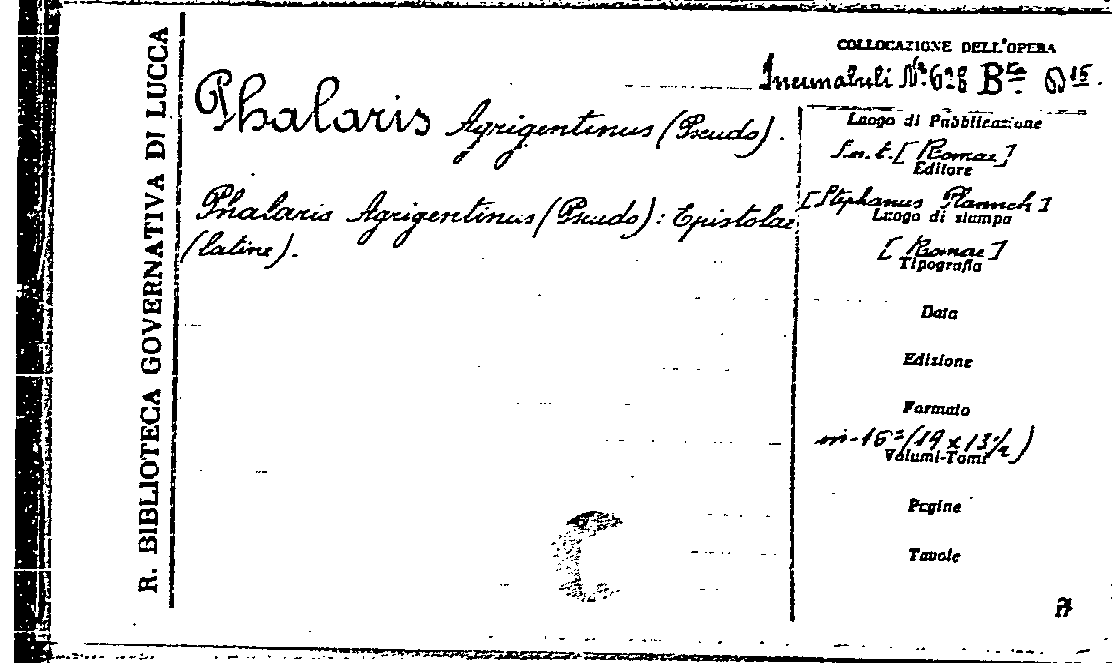 R. BIBLIOTECA GOVERNATIVA DI LUCCA
COLLOCAZIONE DELL'OPERA
Incunabuli Nº 628 Bta
Phalaris Agrigentinus (Pseudo).
Phalaris Agrigentinus (Pseudo): Epistolae
(latine).
Luogo di Pubblicazione
S.n.t. [Romae]
Editore
[Stephanus Plannck]
Luogo di stampa
[Romae]
Tipografia
Data
Edizione
Formato
in-16º (19 x 13½)
Volumi-Tomi
Pagine
Tavole